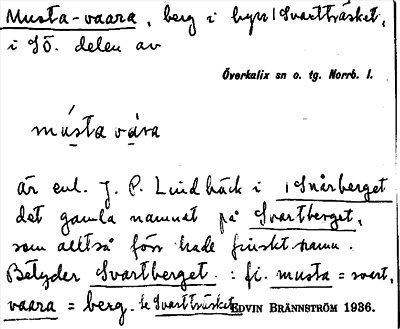 Musta-vaara, berg i byn Svartträsket,
i SÖ. delen av
Överkalix sn o. tg. Norrb. l.
músta vára
är enl. J. P. Lindbäck i Snårberget
det gamla namnet på Svartberget,
som alltså förr hade finskt namn.
Betyder Svartberget. : fi. musta = svart,
vaara = berg. Se Svartträsket.
EDVIN BRÄNNSTRÖM 1936.